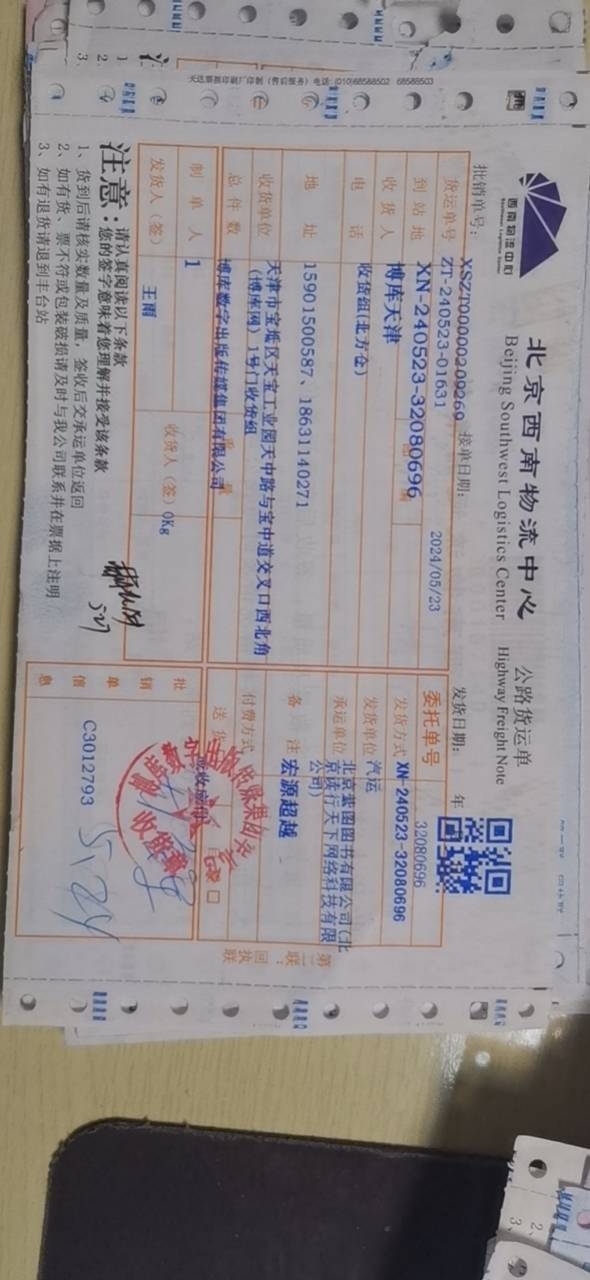 天达票据印刷厂印制（售后服务）电话：(010)68588502 68588503
西南物流中心
北京西南物流中心
Beijing Southwest Logistics Center
公路货运单
Highway Freight Note
批销单号：
XSZT0000020926
接单日期：
2024/05/23
发货日期：
年
货运单号
ZT-240523-01631
委托单号
32080696
到站地
XN-240523-32080696
发货方式
XN-240523-32080696
收货人
博库天津
发货单位
汽运
电话
收货组(北方仓)
承运单位
北京紫图图书有限公司(北
京读行天下网络科技有限
公司)
地址
15901500587、18631140271
备注
宏源超越
收货单位
天津市宝坻区天宝工业园天中路与宝中道交叉口西北角
(博库网）1号门收货组
付费方式
总件数
博库数字出版传媒集团有限公司
送货
制单人
1
0Kg
批销单信息
C3012793
发货人（签）
王雨
收货人（签）
5.27
5.24
收货章
第二联：回执联
注意：
请认真阅读以下条款
您的签字意味着您理解并接受该条款
1、货到后请核实数量及质量，签收后交承运单位返回
2、如有货、票不符或包装破损请及时与我公司联系并在票据上注明
3、如有退货请退到丰台站